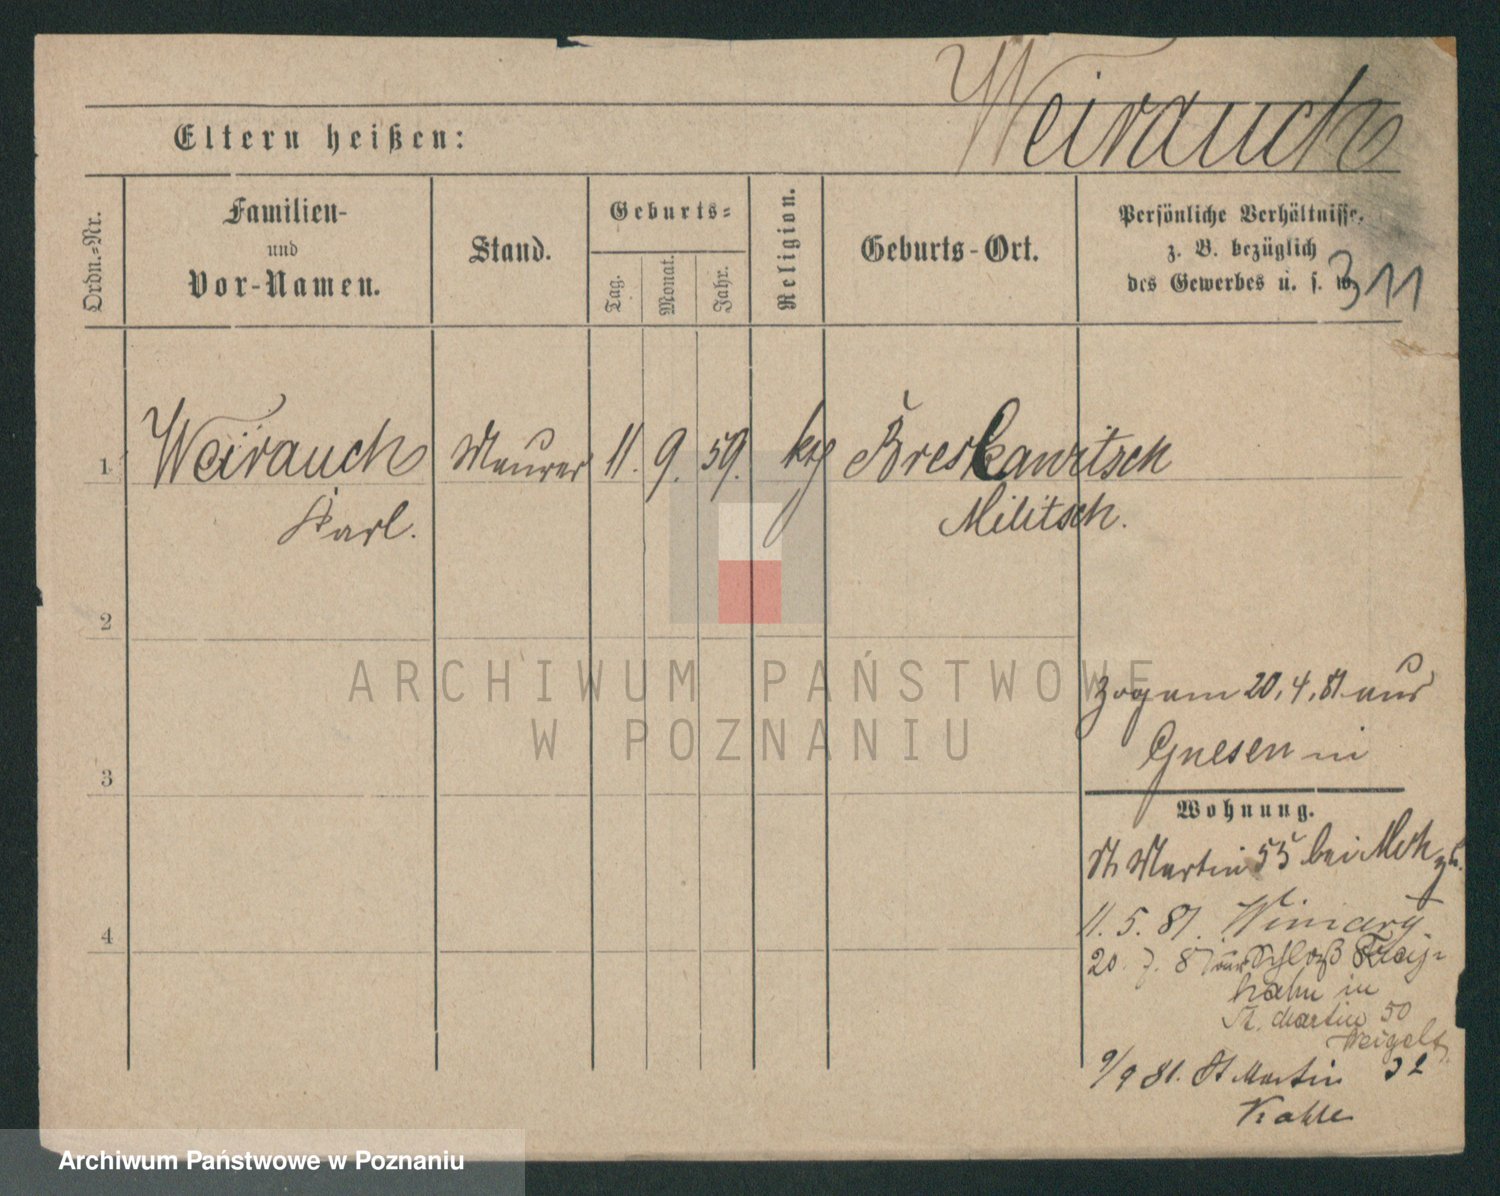 Weirauch
Eltern heißen:
Ordn.-Nr.
Familien-
und
Vor-Namen.
Stand.
Geburts-
Tag.
Monat.
Jahr.
Religion.
Geburts-Ort.
Persönliche Verhältnisse,
z. B. bezüglich
des Gewerbes u. s. w.
311
1 Weirauch Maurer 11. 9. 59. Breslawitsch
Karl. Militsch.
2
3
4
zog am 20. 4. 81 aus
Gnesen in
Wohnung.
St Martin 55 bei
11. 5. 81. Winiary
20. 7. 81 aus Schloß
in
St. Martin 50
Weigelt
9/9 81. St Martin 32
Kahle
ARCHIWUM PAŃSTWOWE
W POZNANIU
Archiwum Państwowe w Poznaniu